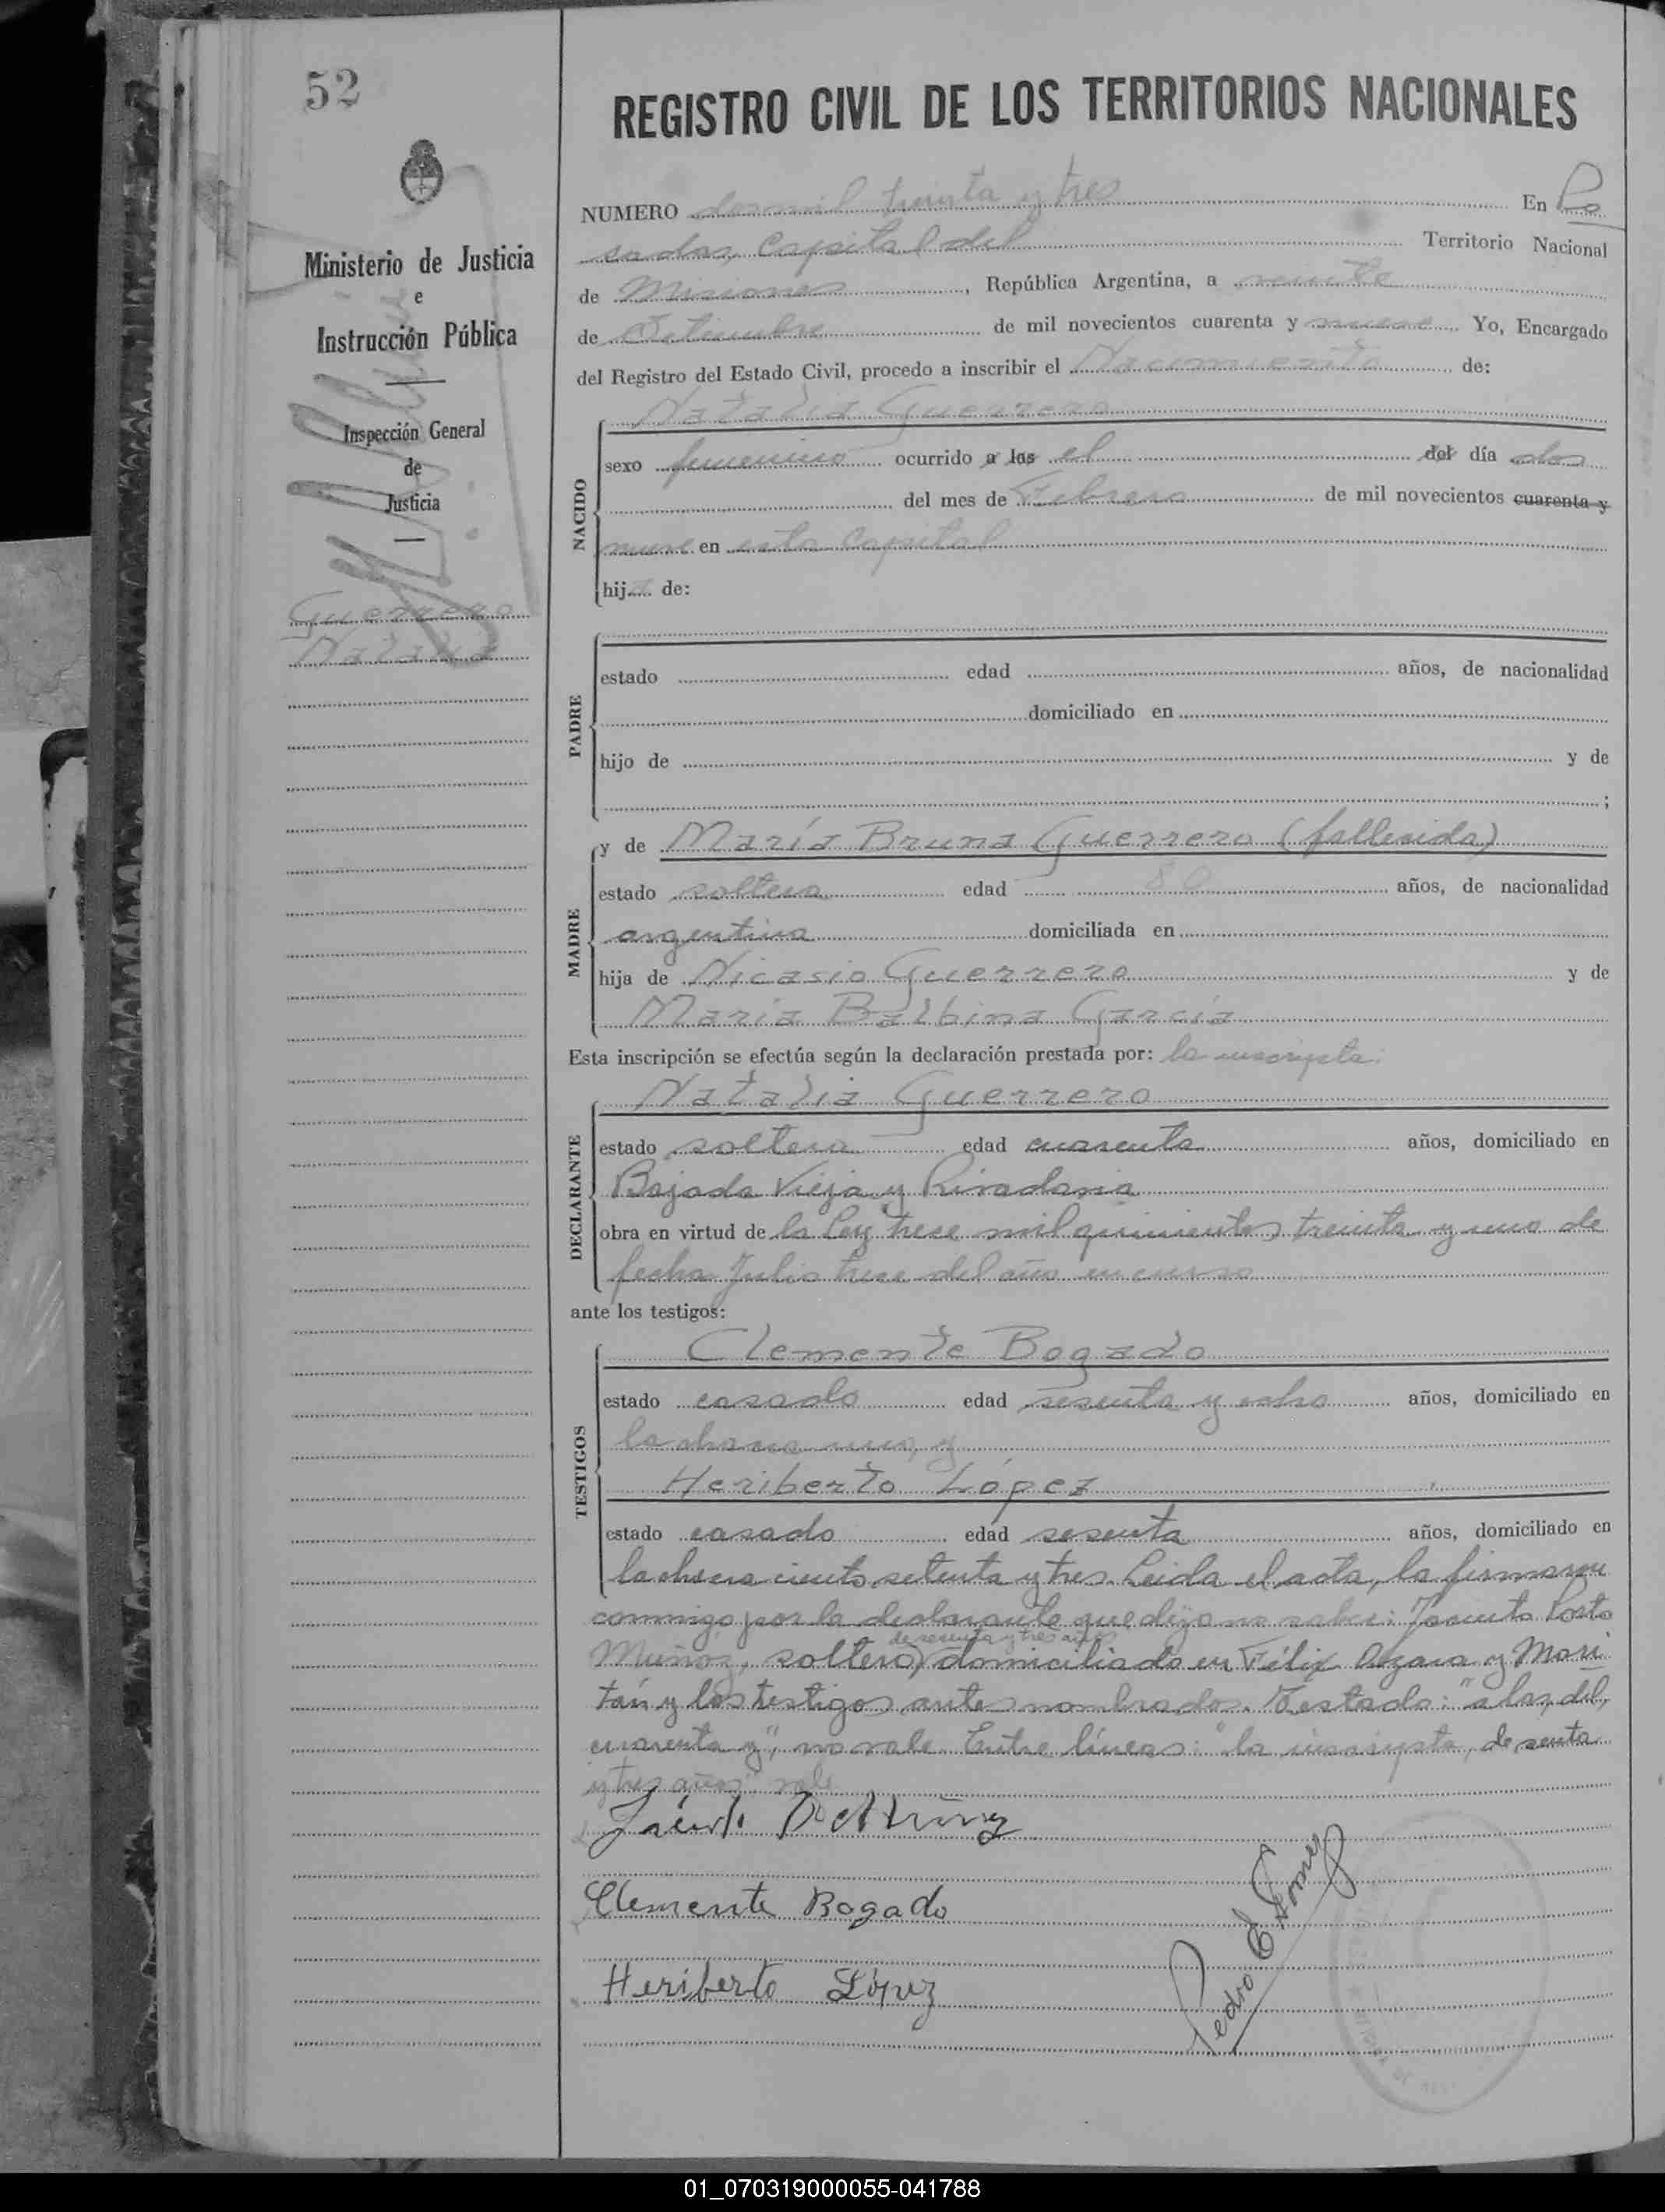 52
REGISTRO CIVIL DE LOS TERRITORIOS NACIONALES
Ministerio de Justicia
e
Instrucción Pública
Inspección General
de
Justicia
Guerrero
Natalia
NUMERO dos mil treinta y tres En Po
sadas, Capital del Territorio Nacional
de Misiones, República Argentina, a veinte
de Setiembre de mil novecientos cuarenta y nueve Yo, Encargado
del Registro del Estado Civil, procedo a inscribir el Nacimiento de:
Natalia Guerrero
NACIDO
sexo femenino ocurrido a las el del día dos
del mes de Febrero de mil novecientos cuarenta y
nueve en esta Capital
hija de:
PADRE
estado edad años, de nacionalidad
domiciliado en
hijo de y de
;
MADRE
y de María Bruna Guerrero (fallecida)
estado soltera edad 80 años, de nacionalidad
argentina domiciliada en
hija de Nicasio Guerrero y de
María Balbina García
Esta inscripción se efectúa según la declaración prestada por: la inscripta:
Natalia Guerrero
DECLARANTE
estado soltera edad cuarenta años, domiciliado en
Bajada Vieja y Rivadavia
obra en virtud de la Ley trece mil quinientos treinta y uno de
fecha Julio trece del año en curso
ante los testigos:
Clemente Bogado
TESTIGOS
estado casado edad sesenta y ocho años, domiciliado en
la chacra una, y
Heriberto López
estado casado edad sesenta años, domiciliado en
la chacra ciento setenta y tres. Leida el acta, la firmaron
conmigo por la declarante que dijo no saber: Jacinto Porto
de sesenta y tres años
Muñoz, soltero, domiciliado en Félix Azara y Mari
tán y los testigos antes nombrados. Testado: "a las, del,
cuarenta y", no vale. Entre líneas: "la inscripta, de senta
y tres años" vale
Clemente Bogado
Heriberto López
Pedro E. Gomez
01_070319000055-041788